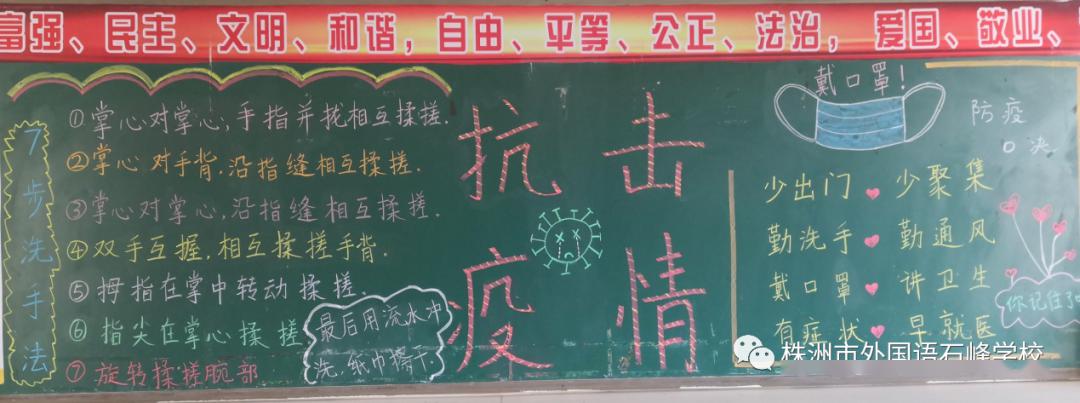 富强、民主、文明、和谐，自由、平等、公正、法治，爱国、敬业、
7步洗手法
①掌心对掌心，手指并找相互揉搓.
②掌心对手背，沿指缝相互揉搓.
③掌心对掌心，沿指缝相互揉搓.
④双手互握，相互揉搓手背.
⑤拇指在掌中转动揉搓.
⑥指尖在掌心揉搓
⑦旋转揉搓腕部
最后用流水冲
洗，纸巾擦干.
抗击
疫情
戴口罩！
防疫
口决
少出门 少聚集
勤洗手 勤通风
戴口罩 讲卫生
有症状 早就医
你记住了
株洲市外国语石峰学校